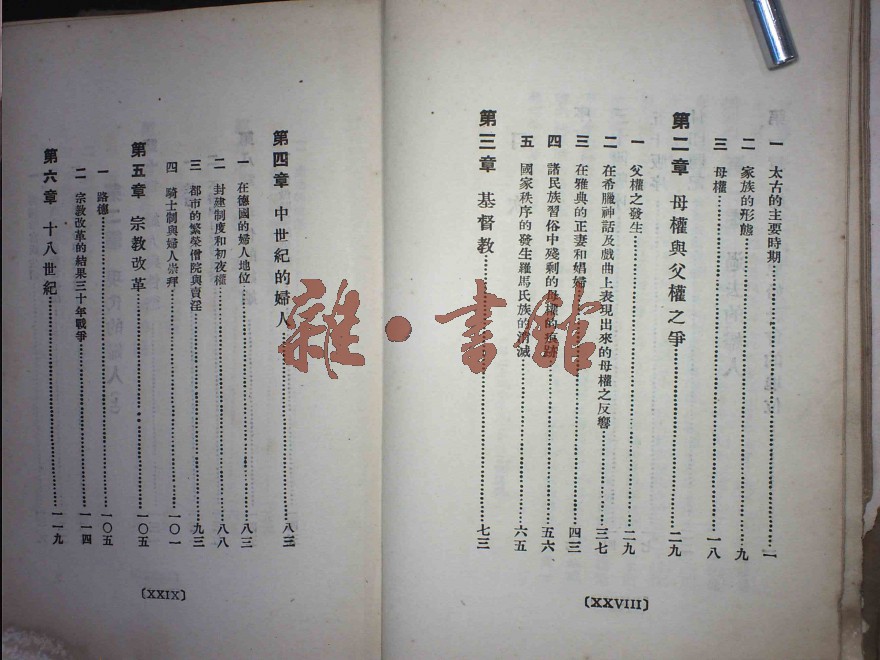 一　太古的主要時期…………一
二　家族的形態…………九
三　母權…………一八
第二章　母權與父權之爭…………二九
一　父權之發生…………二九
二　在希臘神話及戲曲上表現出來的母權之反響…………三七
三　在雅典的正妻和娼婦…………四三
四　諸民族習俗中殘剩的母權的痕跡…………五六
五　國家秩序的發生羅馬氏族的消滅…………六五
第三章　基督教…………七三
〔XXVIII〕
第四章　中世紀的婦人…………八三
一　在德國的婦人地位…………八三
二　封建制度和初夜權…………八八
三　都市的繁榮僧院與賣淫…………九三
四　騎士制與婦人崇拜…………一〇一
第五章　宗教改革…………一〇五
一　路德…………一〇五
二　宗教改革的結果三十年戰爭…………一一四
第六章　十八世紀…………一一九
〔XXIX〕
雜·書館